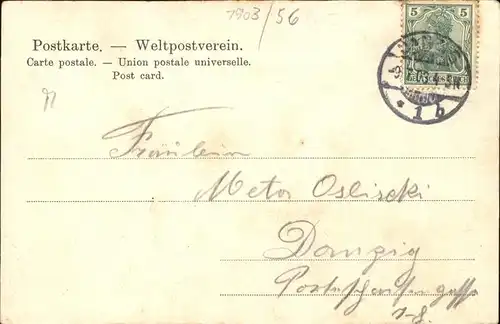 1903/56
Postkarte. — Weltpostverein.
Carte postale. — Union postale universelle.
Post card.
5
* 1 b
Fräulein
Meta Oslischki
Danzig